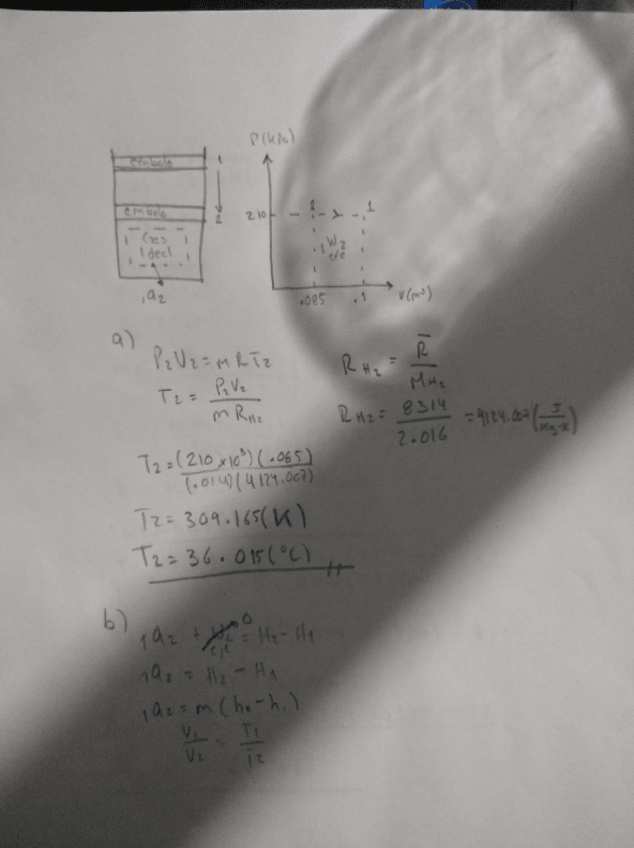 P(kPa)
embolo 1
embolo 2
Gas
Ideal
1Q2
210 2 1
1W2
c/e
.085 .1 V(m³)
a)
P2V2 = m R T2
T2 = P2V2 / m RH2
RH2 = R̅ / MH2
RH2 = 8314 / 2.016 = 4124.007 (J / kg-K)
T2 = (210 x10³)(.085) / (.014)(4124.007)
T2 = 309.165(K)
T2 = 36.015(°C)
b)
1Q2 + 1W2 0 = H2 - H1
1Q2 = H2 - H1
1Q2 = m(h2 - h1)
V1 / V2 = T1 / T2